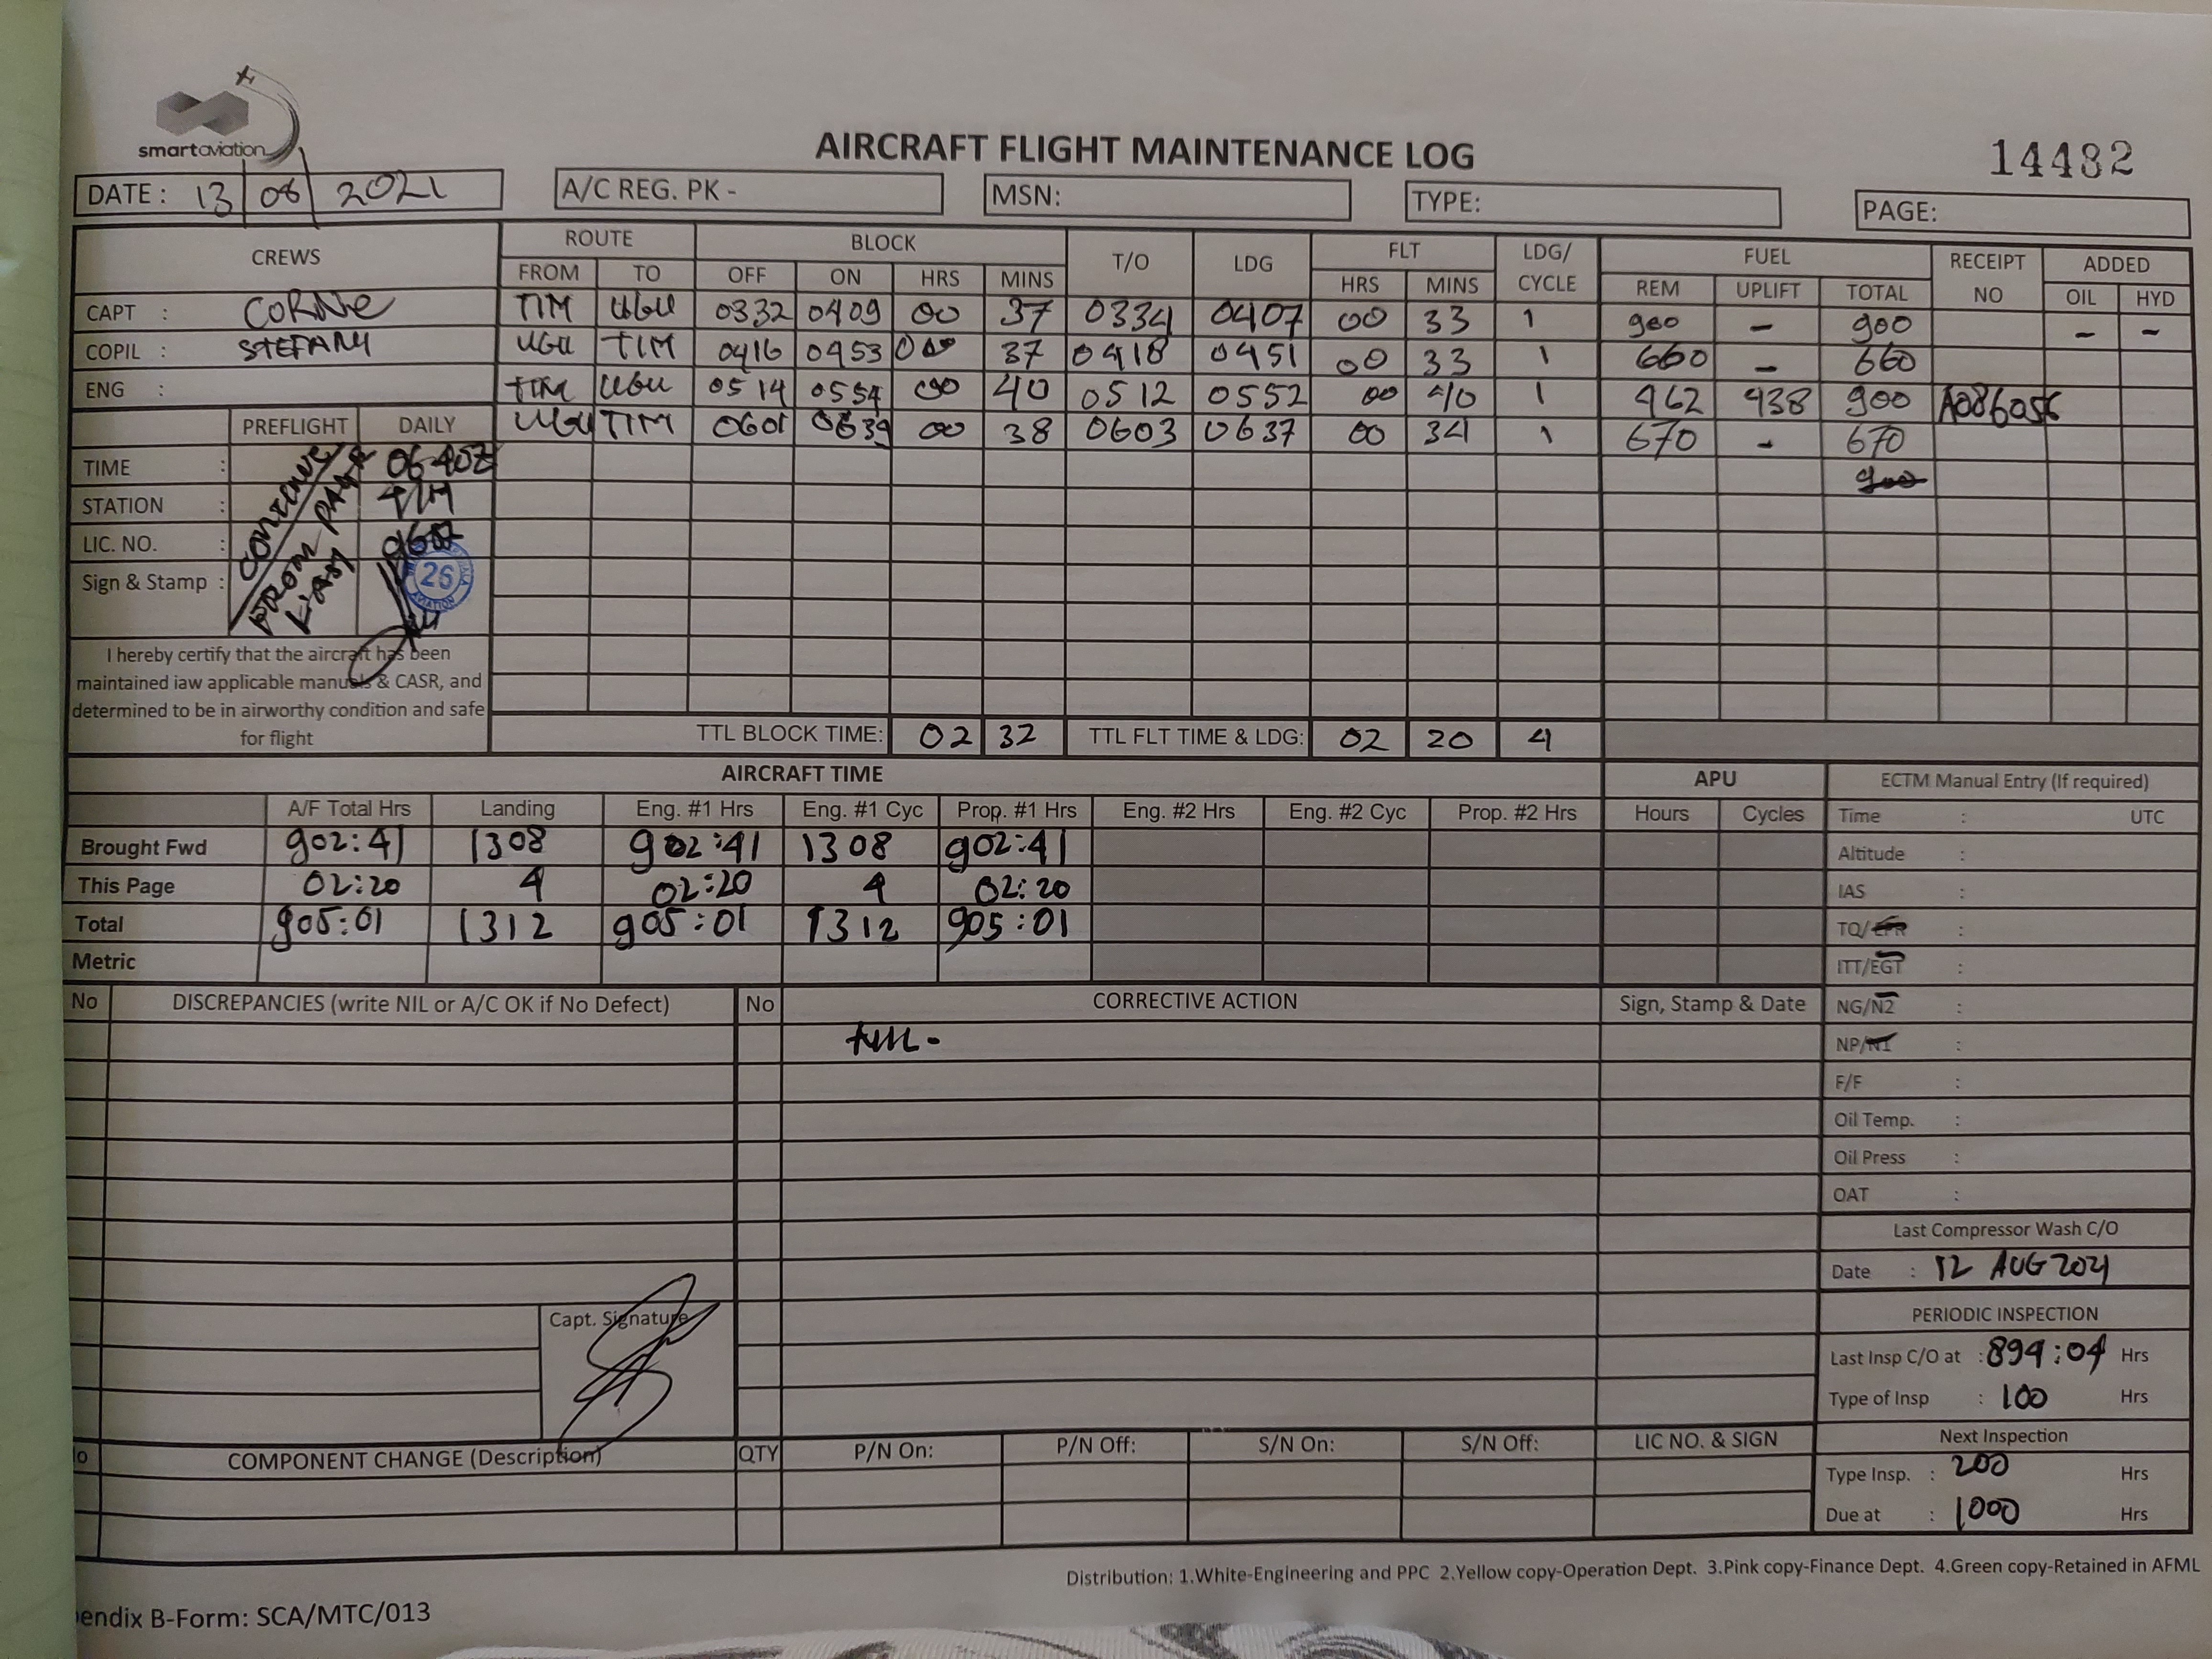 smartaviation
AIRCRAFT FLIGHT MAINTENANCE LOG
14482
DATE : 13 08 2021
A/C REG. PK -
MSN:
TYPE:
PAGE:
CREWS ROUTE BLOCK T/O LDG FLT LDG/ CYCLE FUEL RECEIPT NO ADDED
FROM TO OFF ON HRS MINS HRS MINS REM UPLIFT TOTAL OIL HYD
CAPT : CORNE TIM UGU 0332 0409 00 37 0334 0407 00 33 1 900 - 900 - -
COPIL : STEFANY UGU TIM 0416 0453 00 37 0418 0451 00 33 1 660 - 660
ENG : TIM UGU 0514 0554 00 40 0512 0552 00 40 1 462 438 900 A086056
PREFLIGHT DAILY UGU TIM 0601 0639 00 38 0603 0637 00 34 1 670 - 670
TIME : 0640Z
900
STATION : TIM
LIC. NO. :
Sign & Stamp :
CONTINUE
FROM PAGE
LAST
26
AVIATION
I hereby certify that the aircraft has been
maintained iaw applicable manuals & CASR, and
determined to be in airworthy condition and safe
for flight
TTL BLOCK TIME: 02 32 TTL FLT TIME & LDG: 02 20 4
AIRCRAFT TIME APU
A/F Total Hrs Landing Eng. #1 Hrs Eng. #1 Cyc Prop. #1 Hrs Eng. #2 Hrs Eng. #2 Cyc Prop. #2 Hrs Hours Cycles
Brought Fwd 902:41 1308 902:41 1308 902:41
This Page 02:20 4 02:20 4 02:20
Total 905:01 1312 905:01 1312 905:01
Metric
ECTM Manual Entry (If required)
Time : UTC
Altitude :
IAS :
TQ/EPR :
ITT/EGT :
NG/N2 :
NP/N1 :
F/F :
Oil Temp. :
Oil Press :
OAT :
Last Compressor Wash C/O
Date : 12 AUG 2021
PERIODIC INSPECTION
Last Insp C/O at : 894:04 Hrs
Type of Insp : 100 Hrs
Next Inspection
Type Insp. : 200 Hrs
Due at : 1000 Hrs
No DISCREPANCIES (write NIL or A/C OK if No Defect) No CORRECTIVE ACTION Sign, Stamp & Date
Capt. Signature
COMPONENT CHANGE (Description) QTY P/N On: P/N Off: S/N On: S/N Off: LIC NO. & SIGN
Distribution: 1.White-Engineering and PPC 2.Yellow copy-Operation Dept. 3.Pink copy-Finance Dept. 4.Green copy-Retained in AFML
endix B-Form: SCA/MTC/013